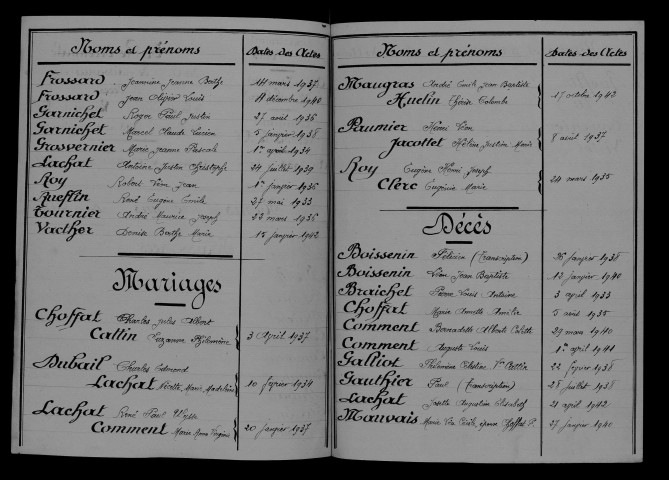 Noms et prénoms Dates des Actes
Frossard Jeannine Jeanne Berthe 14 mars 1937
Frossard Jean Olivier Louis 11 décembre 1940
Garnichet Roger Paul Justin 27 août 1936
Garnichet Marcel Claude Lucien 5 janvier 1938
Grosvernier Marie Jeanne Pascale 1er avril 1934
Lachat Antoine Justin Christophe 24 juillet 1939
Roy Robert Jean 1er janvier 1936
Rueflin René Eugène Emile 27 mai 1933
Tournier André Maurice Joseph 22 mars 1936
Vacther Denise Berthe Marie 15 janvier 1942
Mariages
Choffat Charles Jules Albert
Cattin Suzanne Philomène 3 Avril 1937
Dubail Charles Edmond
Lachat Marie Madeleine 10 février 1934
Lachat René Paul Ulysse
Comment Marie Anne Virginie 20 janvier 1937
Noms et prénoms Dates des Actes
Maugras André Emile Jean Baptiste
Huelin Thérèse Colombe 17 octobre 1942
Paumier Henri Léon
Jacottet Hélène Justine Marie 8 avril 1937
Roy Eugène Henri Joseph
Clerc Eugénie Marie 24 mars 1935
Décès
Boissenin (Transcription) 26 janvier 1938
Boissenin Léon Jean Baptiste 12 janvier 1940
Braichet Pierre Louis Antoine 3 avril 1933
Choffat Marie Annette Amélie 5 août 1935
Comment Bernadette Alberte Colette 29 mars 1940
Comment Auguste Louis 1er avril 1941
Galliot Philomène Célestine Vve Cattin 22 février 1938
Gauthier Paul (Transcription) 28 juillet 1938
Lachat Josette Augustine Elisabeth 21 avril 1942
Mauvais Marie épouse Choffat P. 27 janvier 1940